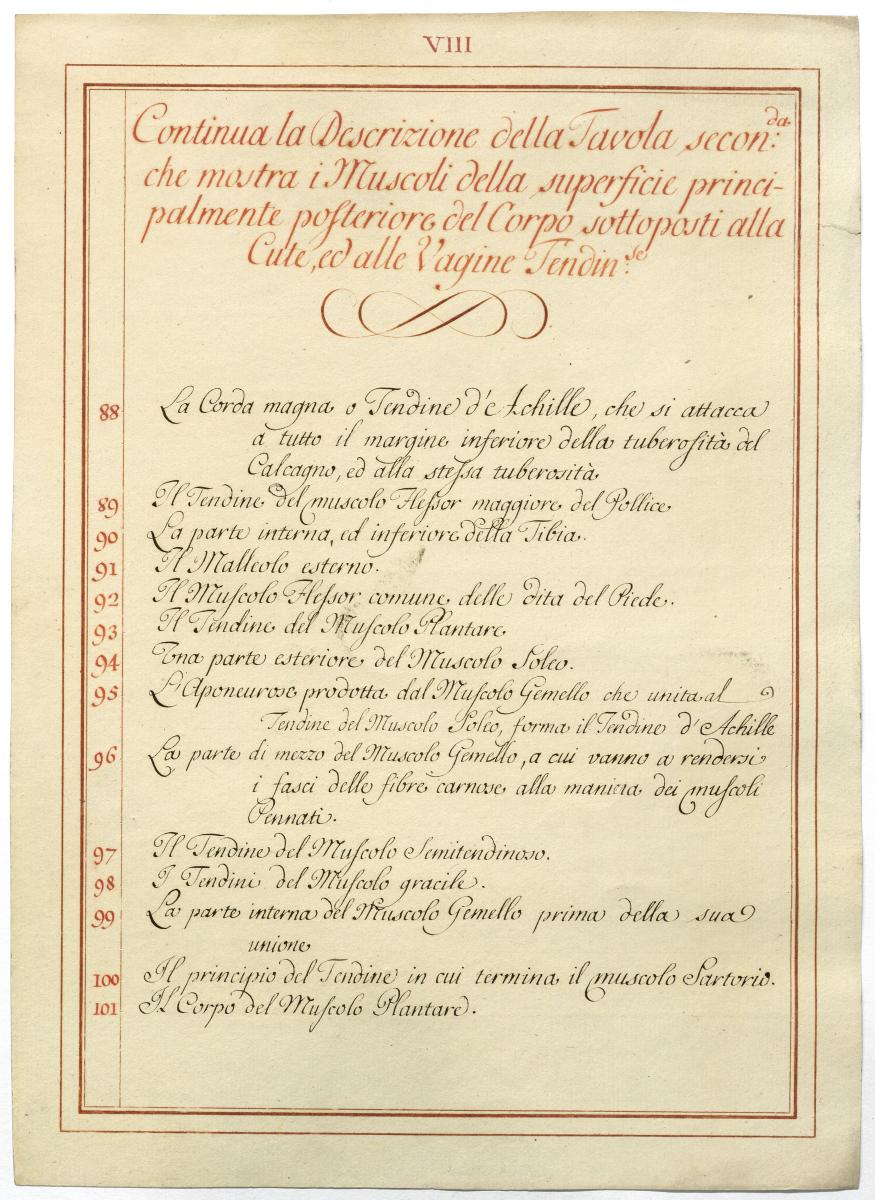 VIII
Continua la Descrizione della Tavola secon:da
che mostra i Muscoli della superficie princi-
palmente posteriore del Corpo sottoposti alla
Cute, ed alle Vagine Tendin:se
88 La Corda magna o Tendine d'e Achille, che si attacca
a tutto il margine inferiore della tuberosità del
Calcagno, ed alla stessa tuberosità
89 Il Tendine del muscolo Flessor maggiore del Pollice
90 La parte interna, ed inferiore della Tibia.
91 Il Malleolo esterno.
92 Il Muscolo Flessor comune delle dita del Piede.
93 Il Tendine del Muscolo Plantare
94 Una parte esteriore del Muscolo Soleo.
95 L'Aponeurose prodotta dal Muscolo Gemello che unita al
Tendine del Muscolo Soleo, forma il Tendine d'Achille
96 La parte di mezzo del Muscolo Gemello, a cui vanno a rendersi
i fasci delle fibre carnose alla maniera dei muscoli
Pennati.
97 Il Tendine del Muscolo Semitendinoso.
98 I Tendini del Muscolo gracile.
99 La parte interna del Muscolo Gemello prima della sua
unione
100 Il principio del Tendine in cui termina il muscolo Sartorio.
101 Il Corpo del Muscolo Plantare.